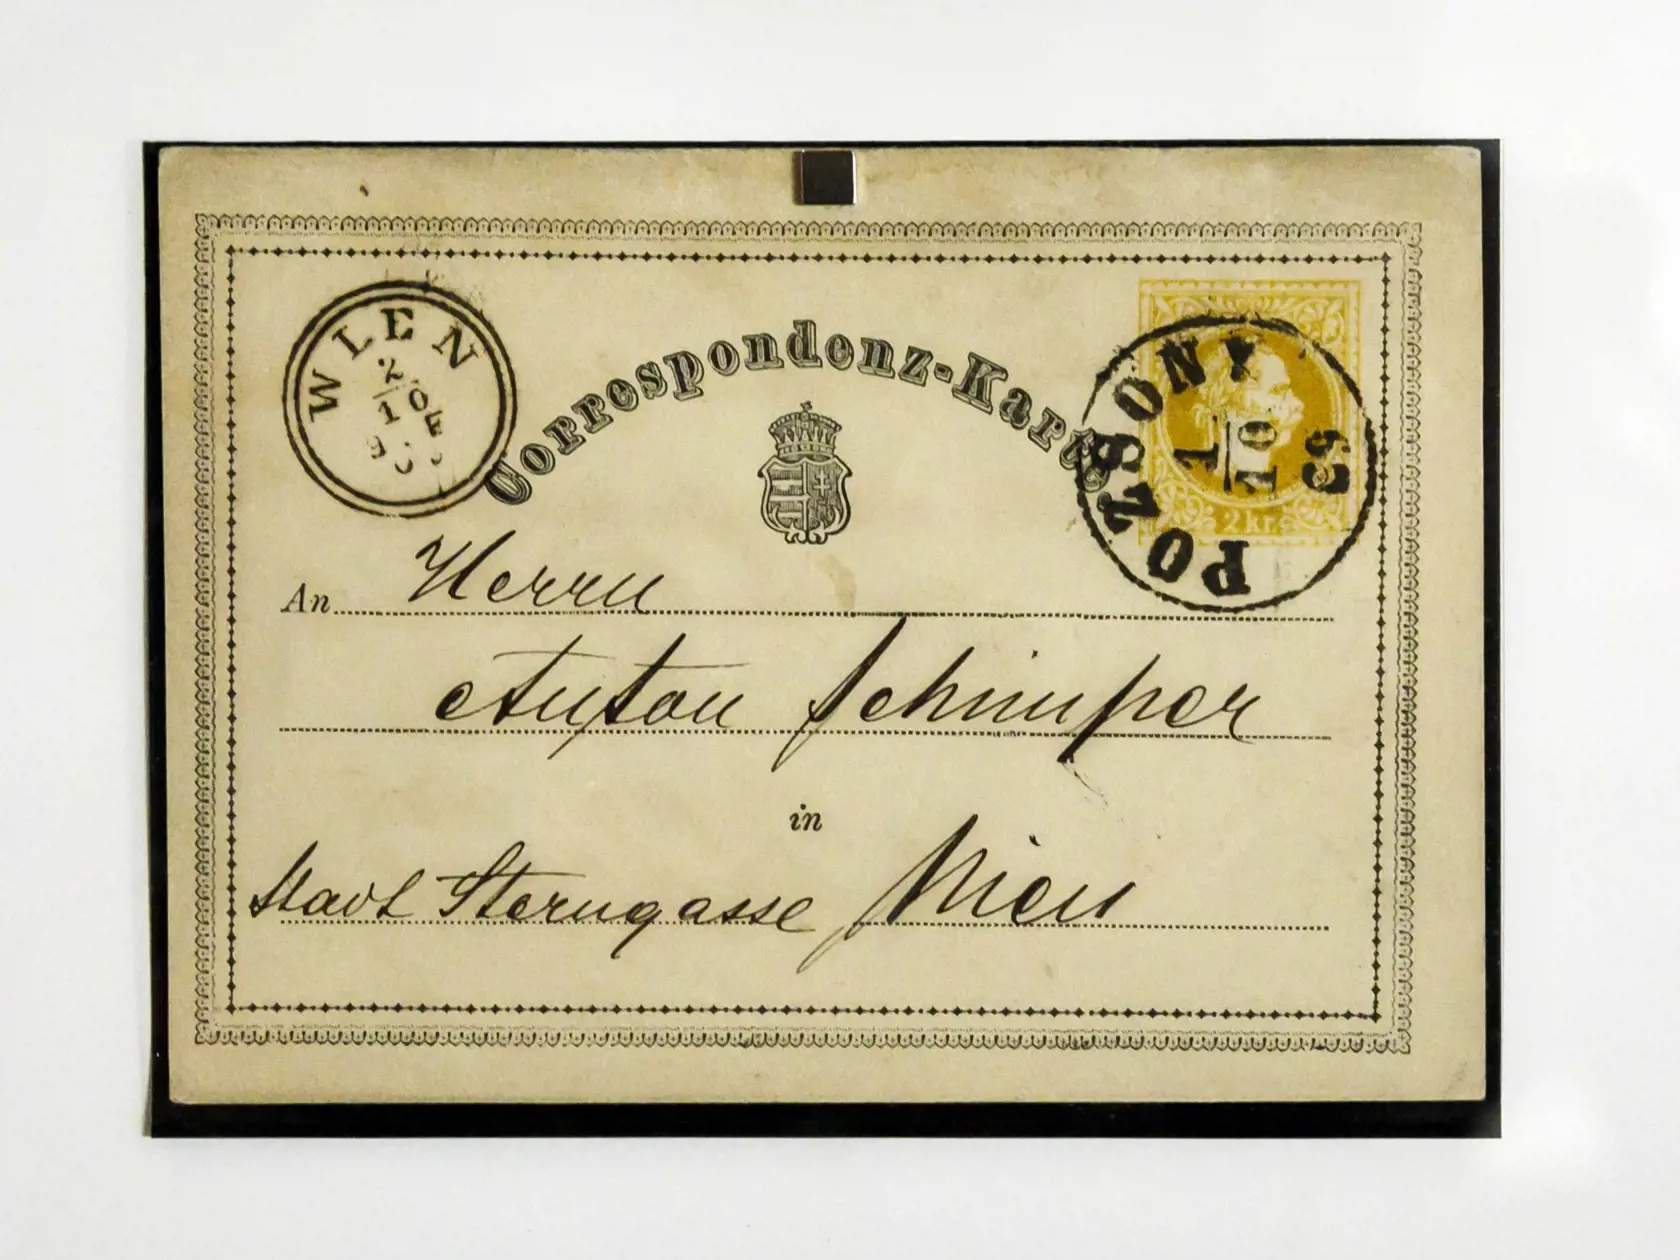 WIEN
2/10
Correspondenz-Karte
POZSONY
1/10
69
2 kr.
An Herrn
Anton Schimper
in
Stadt Sterngasse Wien